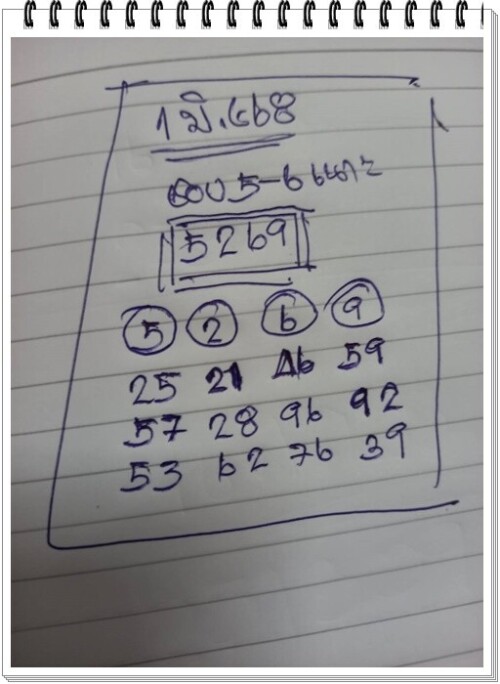 1 มิ.ย68
ชอบ 5-6 เพราะ
5269
5 2 6 9
25 21 46 59
57 28 96 92
53 62 76 39